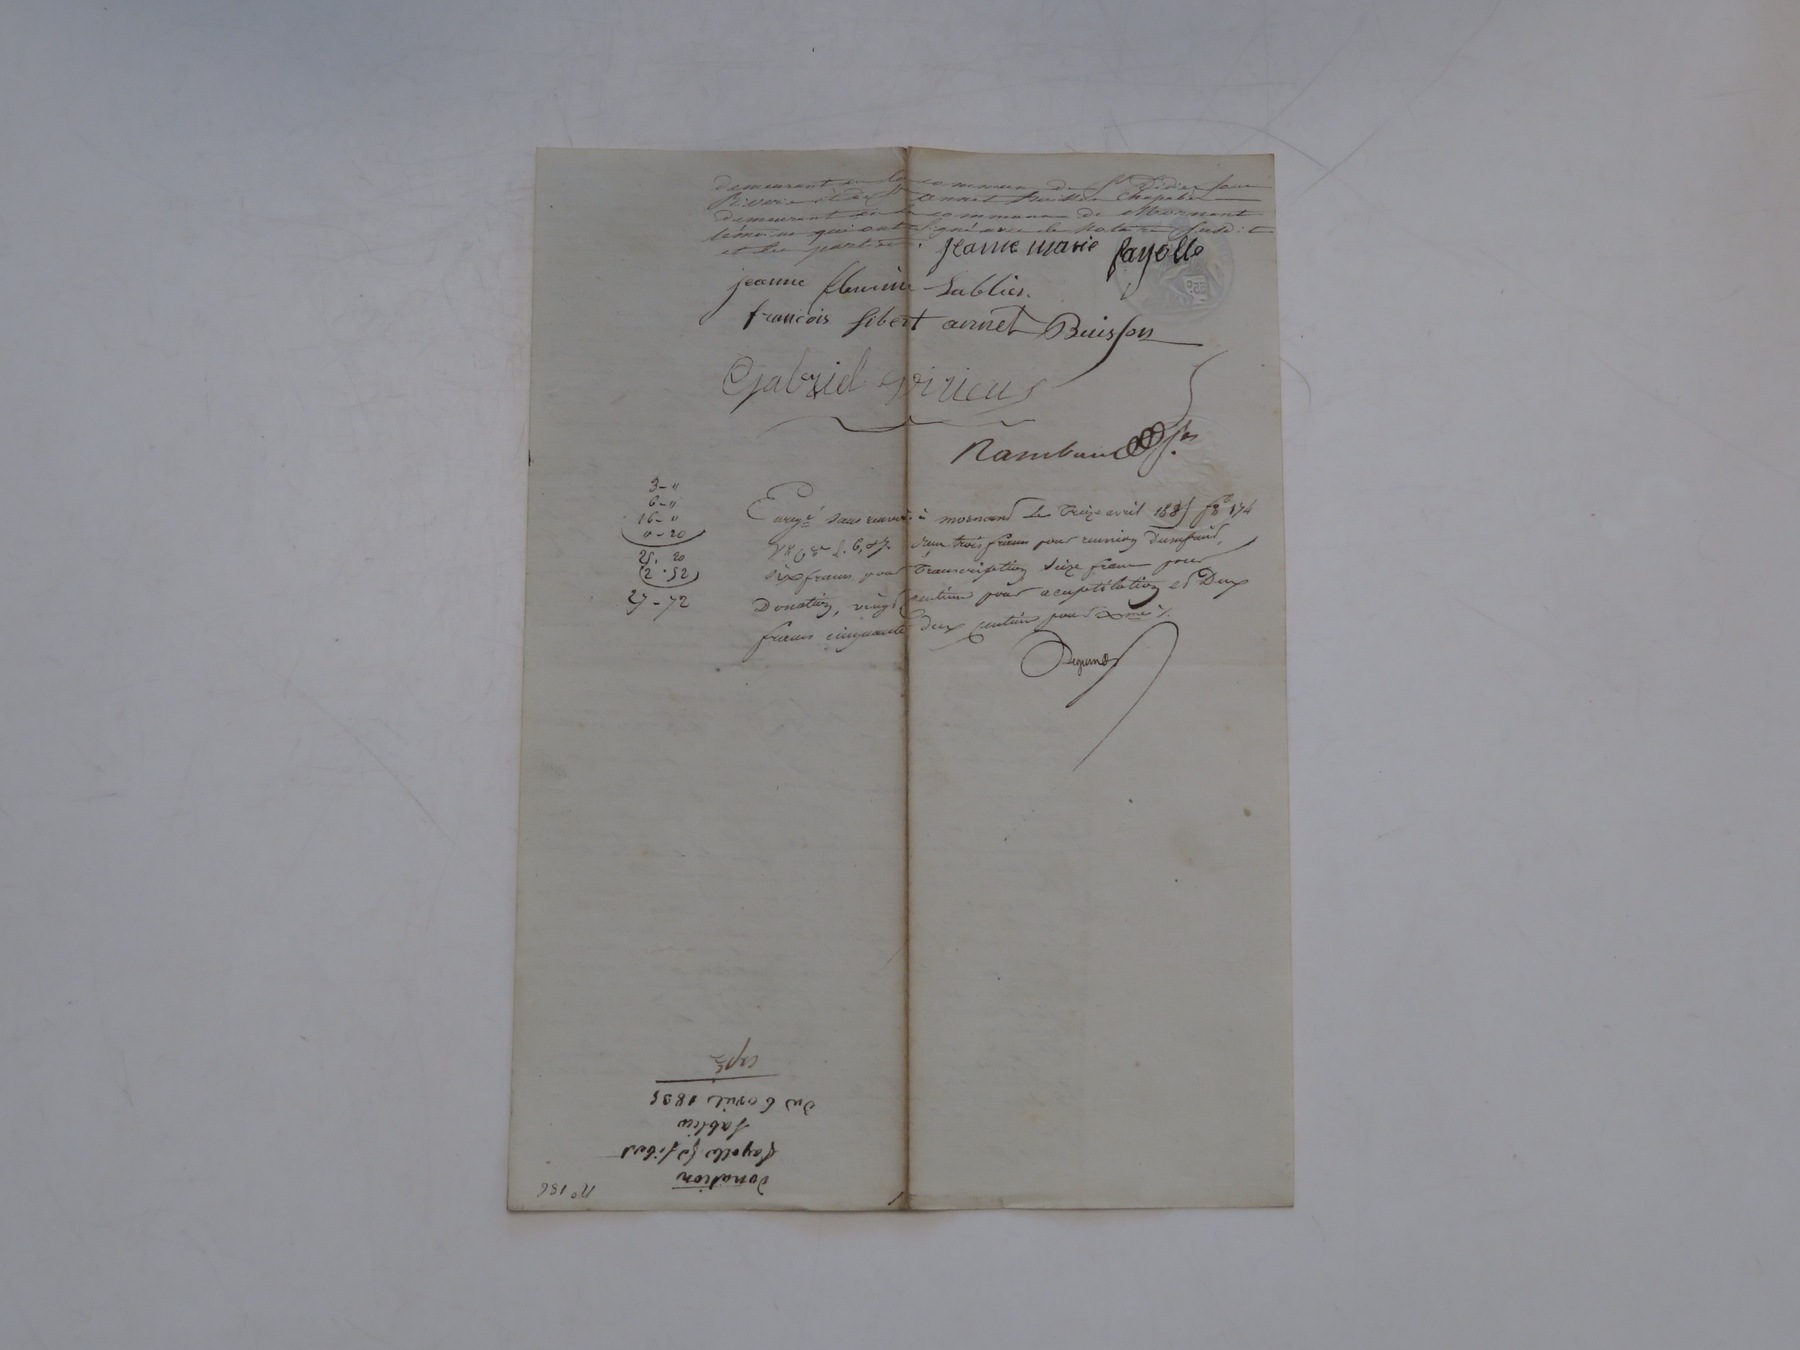 demeurant en la commune de St Didier sous
Riverie et de Sr annet Buisson Chapelier
demeurant en la commune de Mornant
témoins qui ont signé avec le Notaire susdit
et les parties. jeanne marie fayolle
jeanne fleurine Sablier.
francois fibert annet Buisson
Gabriel Virieux
Rambaud
3 - "
6 - "
16 - "
0 - 20
25. 20
2. 52
27 - 72
Enregé sans renvoi à mornant le treize avril 1835 fo 174
trois francs pour reunion
six francs pour transcription seize francs pour
Donation, vingt centimes pour acceptation et Deux
francs cinquante deux centimes pour
no 156
Donation
fayolle fibert
Sablier
du 6 avril 1835
expé